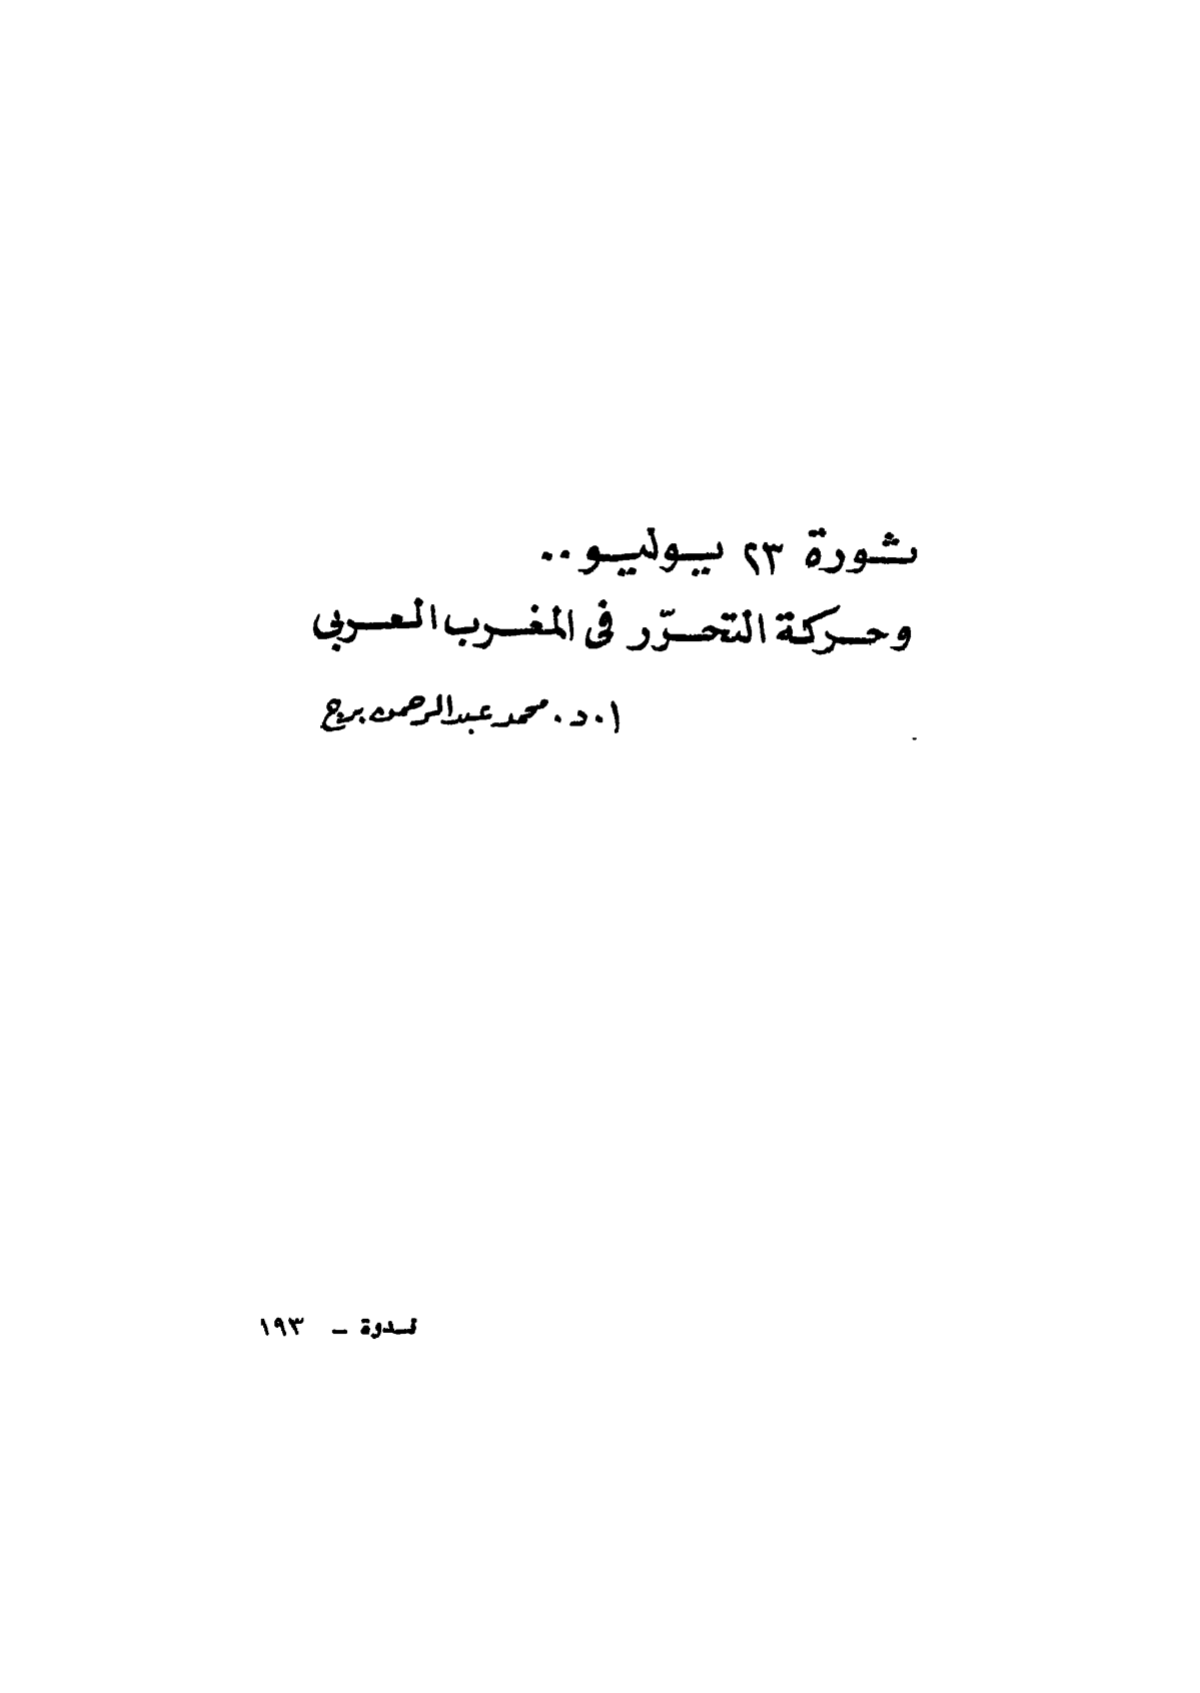 ثورة ٢٣ يوليو ..
وحركة التحرّر فى المغرب العربى
ا . د . محمد عبدالرحمن برج
ندوة – ١٩٣